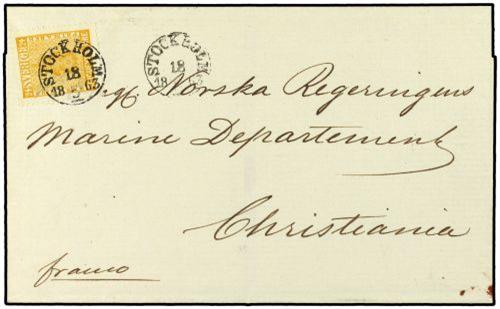 SVERIGE
STOCKHOLM
18
5
18 63
STOCKHOLM
18
18 63
Norska Regeringens
Marine Departement
Christiania
franco